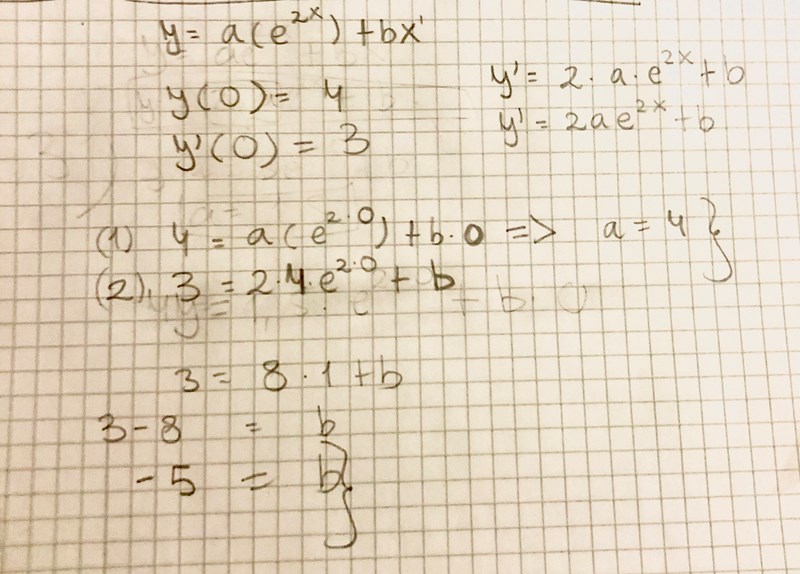 y = a(e^{2x}) + bx
y(0) = 4
y'(0) = 3
y' = 2 · a · e^{2x} + b
y' = 2ae^{2x} + b
(1) 4 = a(e^{2·0}) + b · 0 => a = 4 }
(2) 3 = 2·4·e^{2·0} + b
3 = 8 · 1 + b
3 - 8 = b
-5 = b }